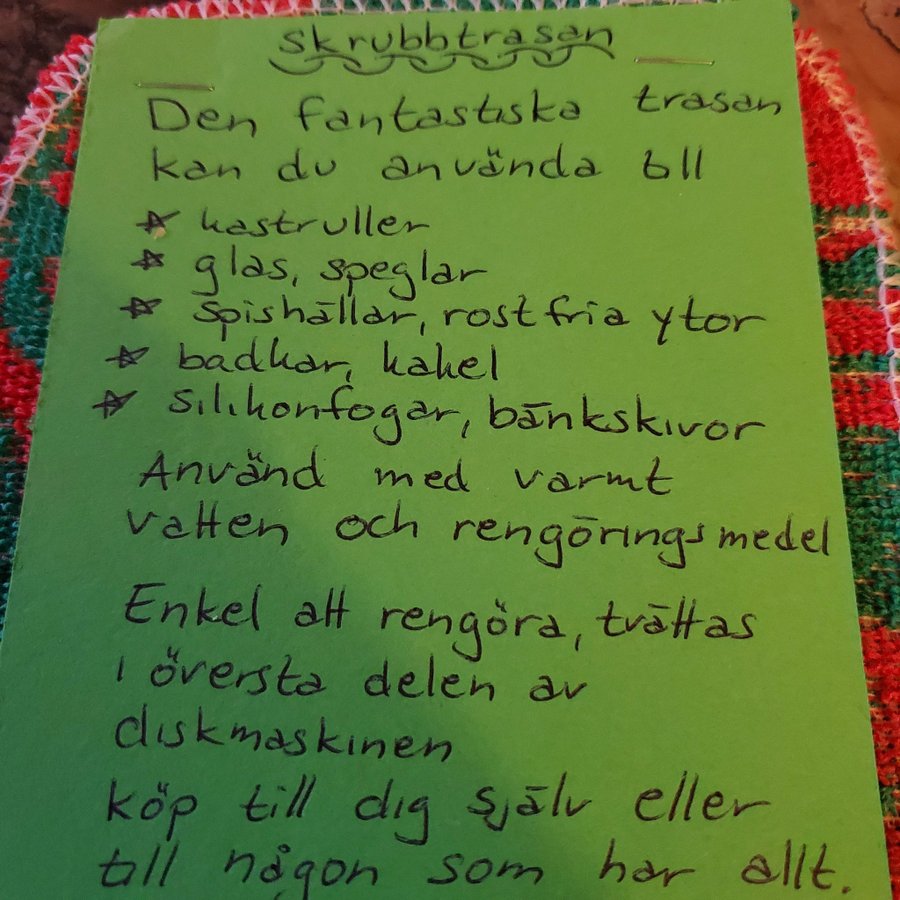 Skrubbtrasan
Den fantastiska trasan
kan du använda till
☆ kastruller
☆ glas, speglar
☆ spishällar, rostfria ytor
☆ badkar, kakel
☆ silikonfogar, bänkskivor
Använd med varmt
vatten och rengöringsmedel
Enkel att rengöra, tvättas
i översta delen av
diskmaskinen
köp till dig själv eller
till någon som har allt.